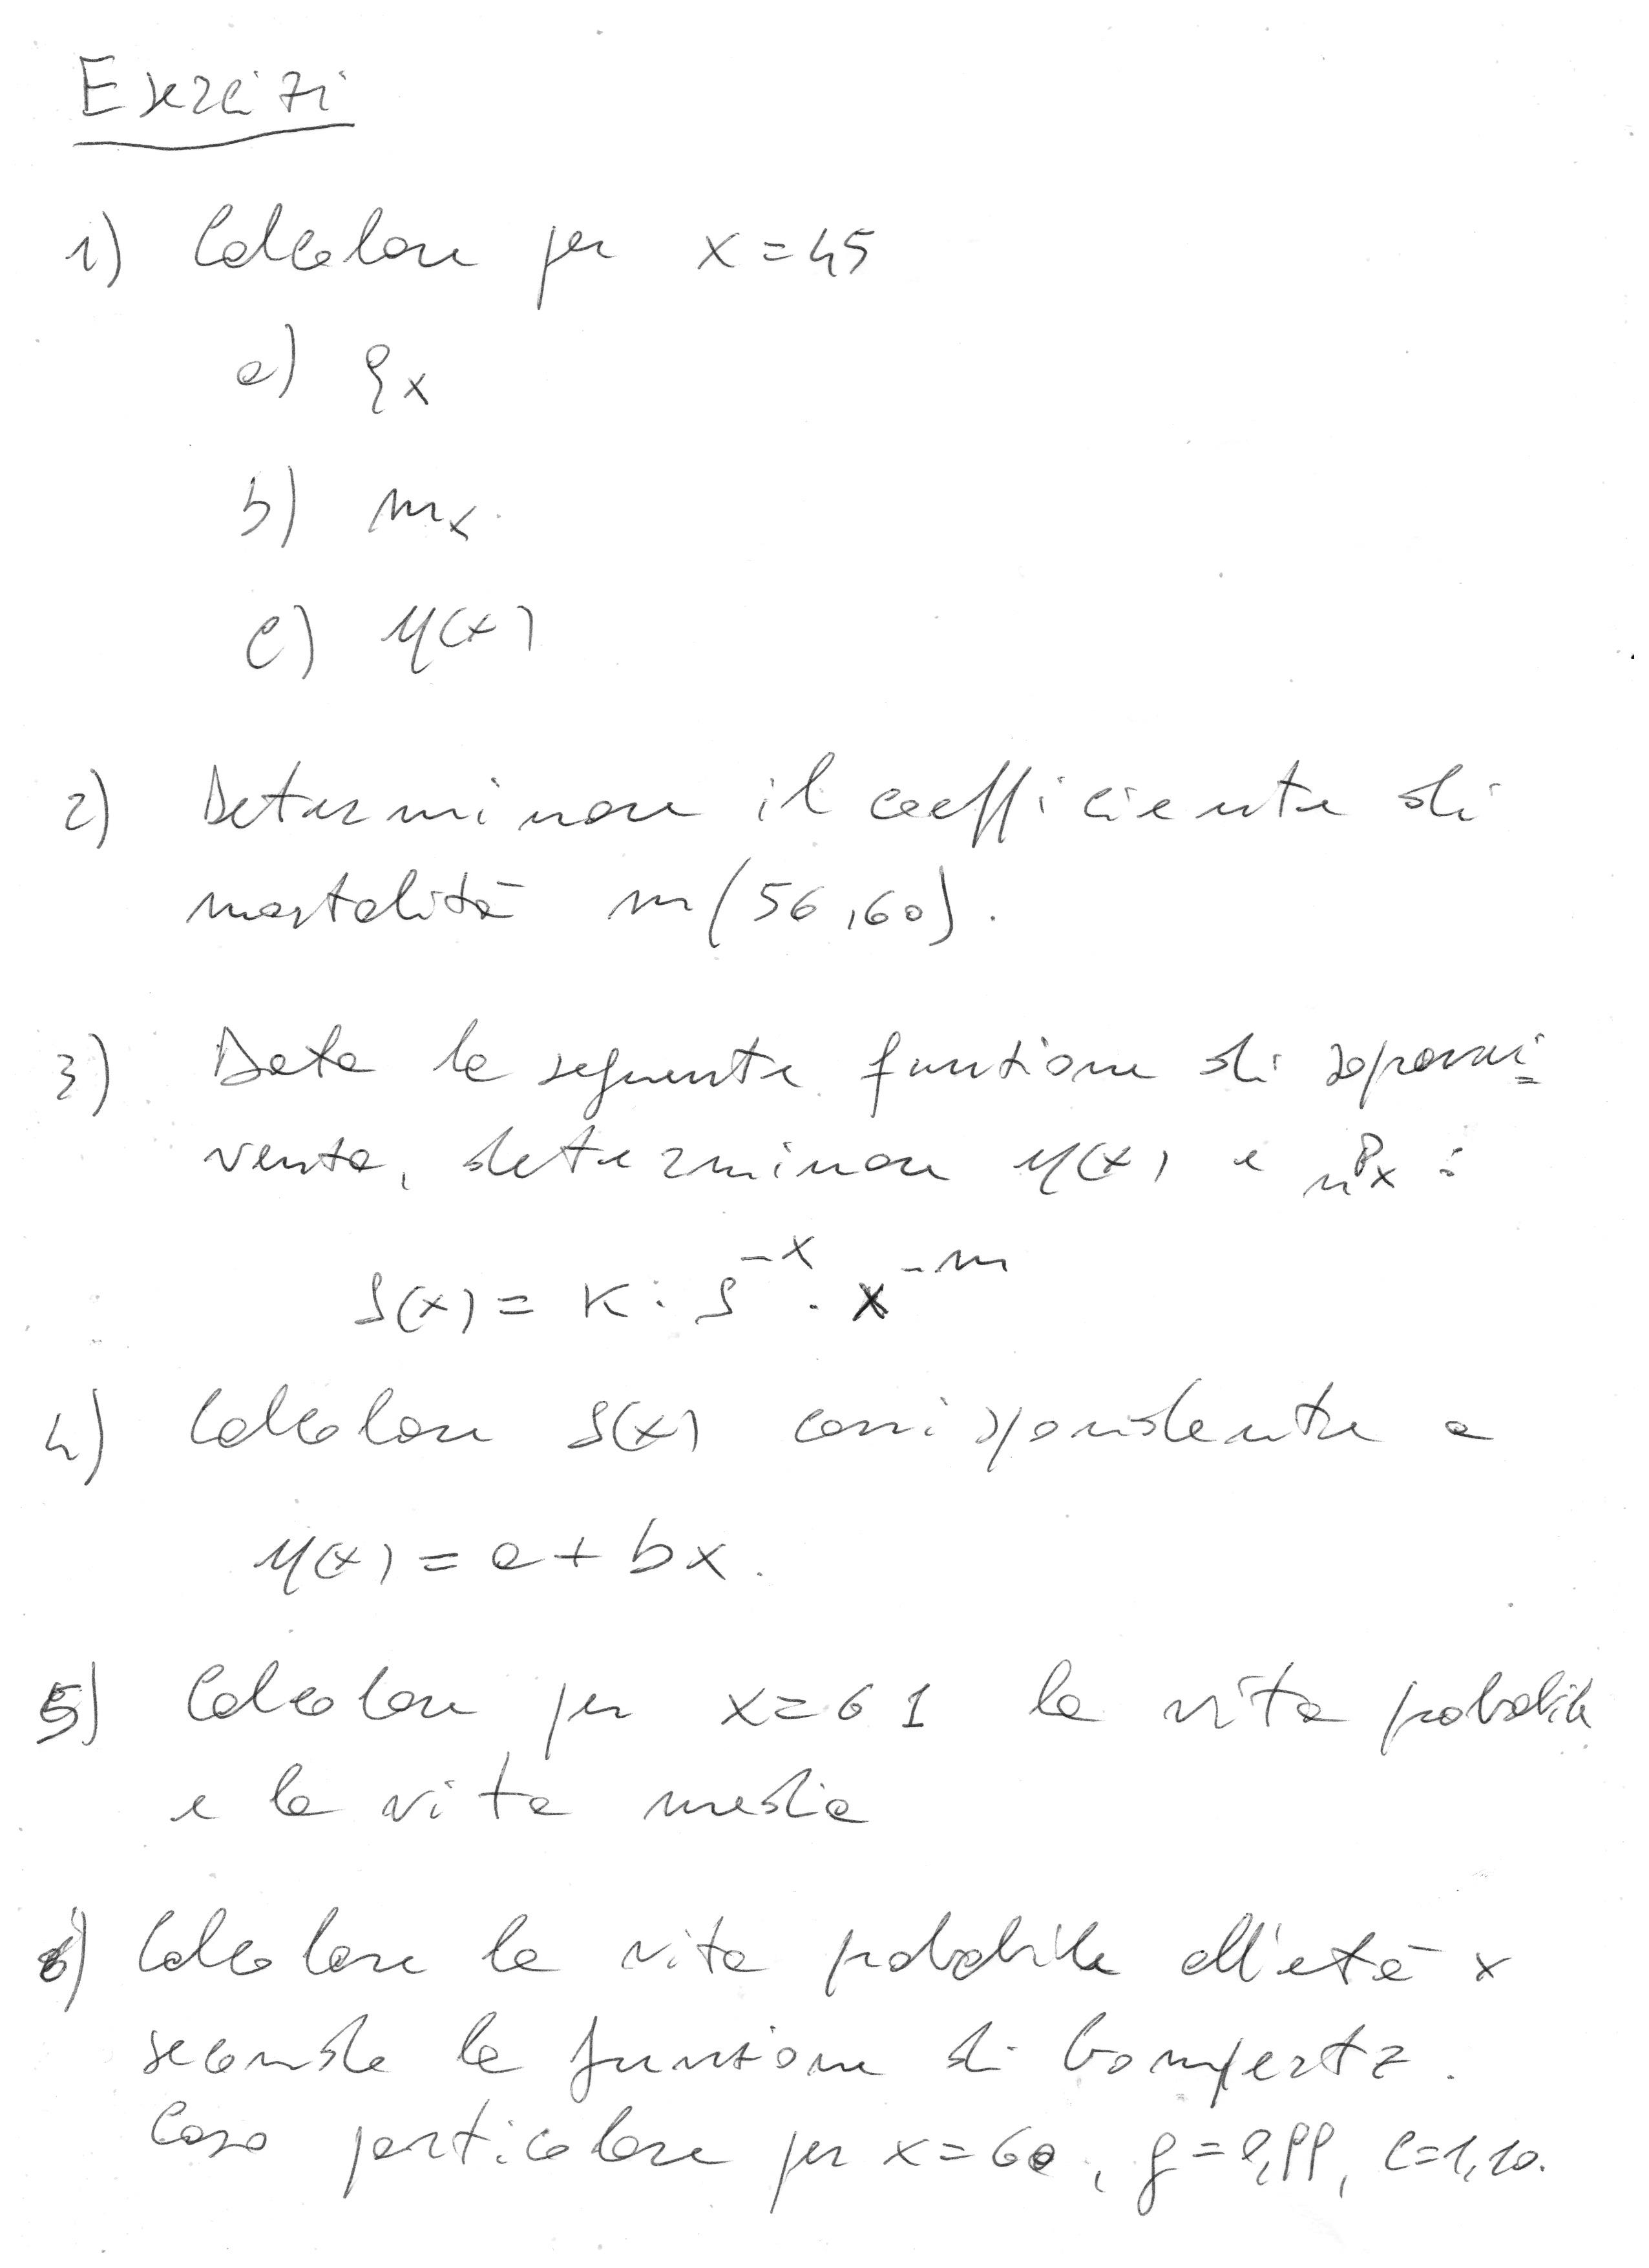 Esercizi
1) Calcolare per x=45
a) qx
b) mx
c) μ(x)
2) Determinare il coefficiente di
mortalità m(56,60).
3) Data la seguente funzione di sopravvi=
venza, determinare μ(x) e nPx :
S(x) = K · s^-x · x^-m
4) Calcolare S(x) corrispondente a
μ(x) = a + bx.
5) Calcolare per x=61 la vita probabile
e la vita media
6) Calcolare la vita probabile all'età x
secondo la funzione di Gompertz.
Caso particolare per x=60, g=0,99, c=1,10.